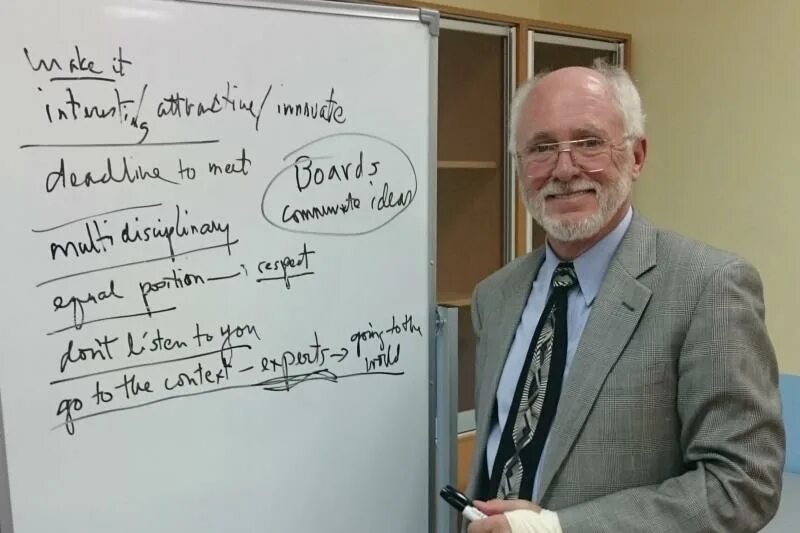 make it
interesting/attractive/innovate
deadline to meet
Boards
communicate ideas
multidisciplinary
equal position — respect
don't listen to you
go to the context — experts → going to the
world